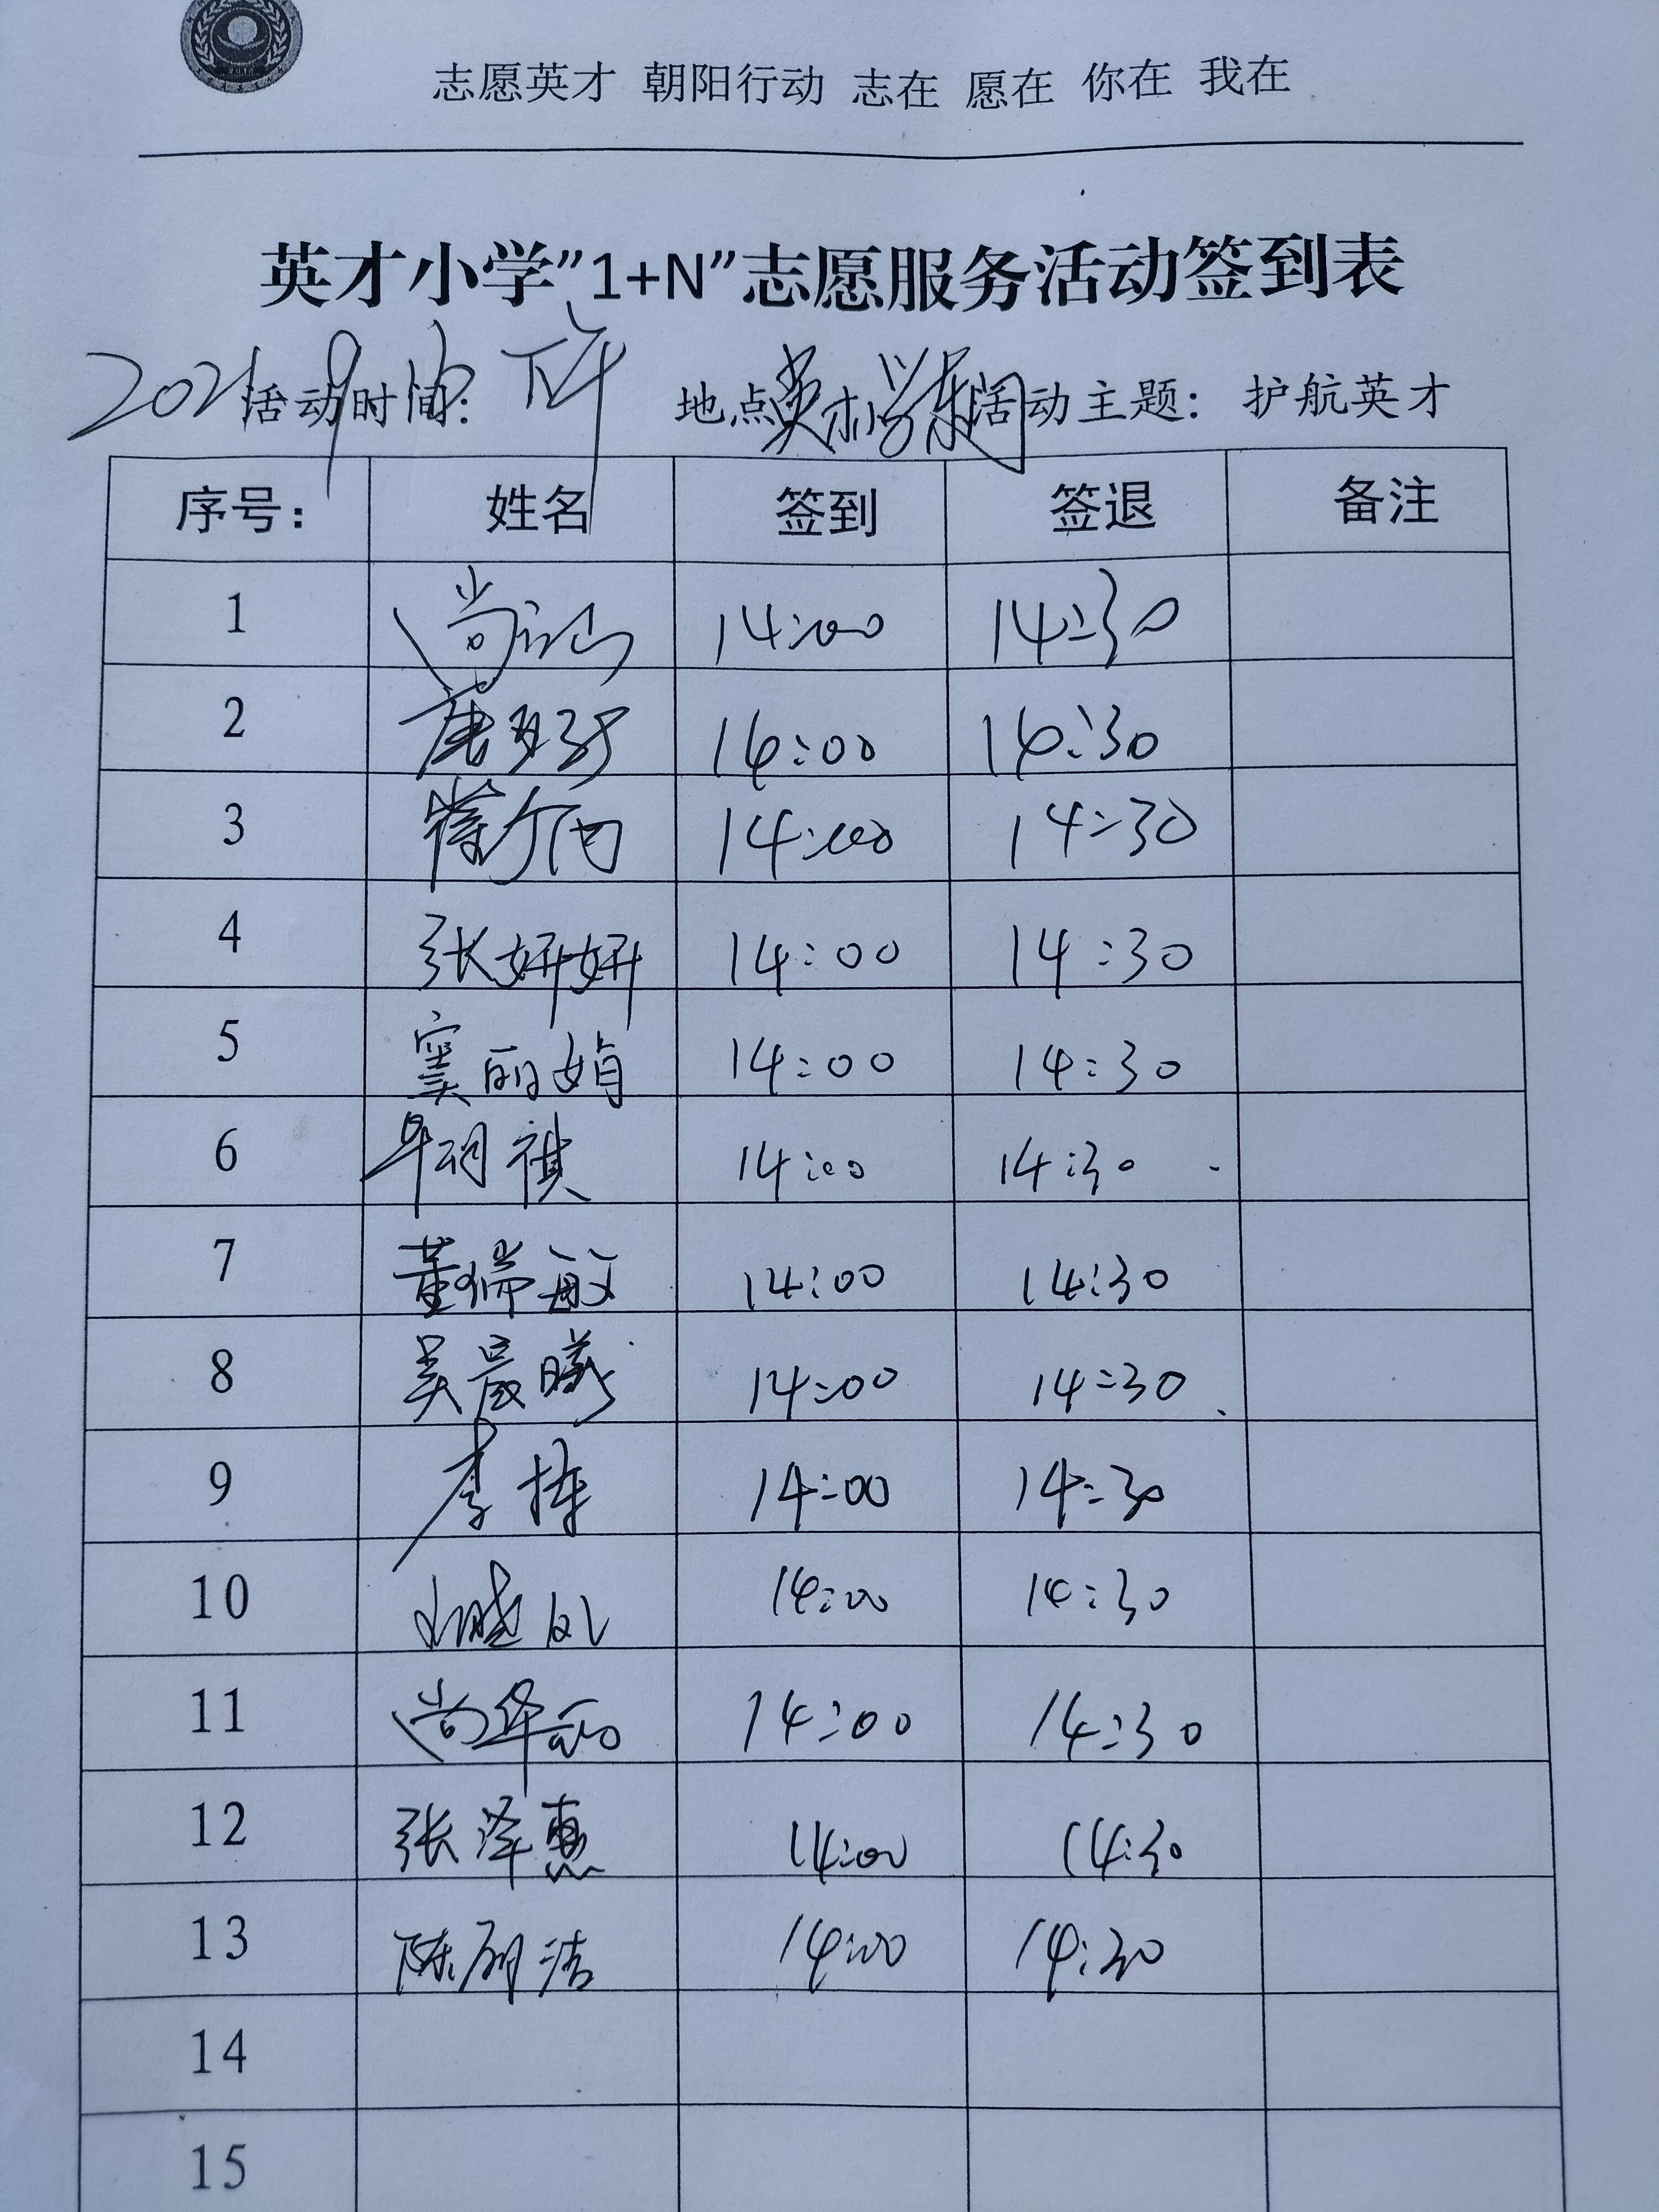 志愿英才 朝阳行动 志在 愿在 你在 我在
英才小学”1+N”志愿服务活动签到表
2021 活动时间: 下午 地点 英才小学东门 活动主题: 护航英才
序号: 姓名 签到 签退 备注
1 尚 14:00 14:30
2 唐 14:00 14:30
3 14:00 14:30
4 张妍妍 14:00 14:30
5 窦丽娟 14:00 14:30
6 祺 14:00 14:30
7 董瑞敏 14:00 14:30
8 吴晨曦 14:00 14:30
9 李 14:00 14:30
10 14:00 14:30
11 尚华丽 14:00 14:30
12 张泽惠 14:00 14:30
13 陈丽洁 14:00 14:30
14
15